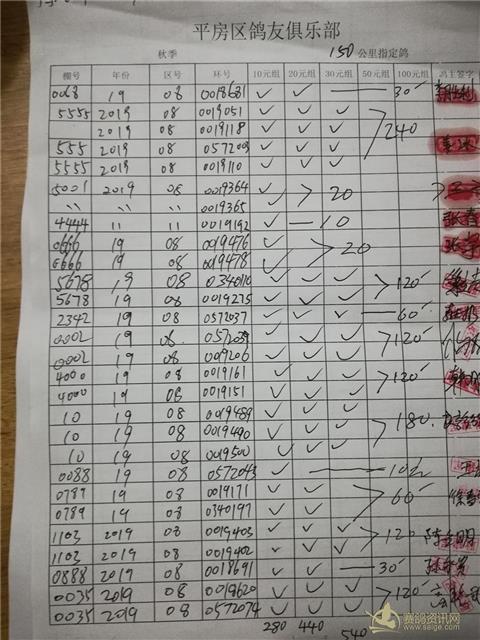 平房区鸽友俱乐部
秋季 150 公里指定鸽
棚号 年份 区号 环号 10元组 20元组 30元组 50元组 100元组 鸽主签字
0068 19 08 0018681 ✓ ✓ — 30
5555 2019 08 0019051 ✓ ✓ ✓
2019 08 0019118 ✓ ✓ ✓ > 240
555 2019 08 057200 ✓ ✓ ✓
5555 2019 08 0019110 ✓ ✓ ✓
5001 2019 08 0019364 ✓ > 20
〃 〃 0019365 ✓
4444 11 11 0019192 ✓ — 10
0666 19 08 0019476 ✓ > 20
6666 19 08 0019478 ✓
5678 19 08 0340110 ✓ ✓ ✓ > 120
5678 19 08 0019275 ✓ ✓ ✓
2342 19 08 0572037 ✓ ✓ ✓ — 60
0002 19 08 0572039 ✓ ✓ ✓ > 120
0002 19 08 0019206 ✓ ✓ ✓
4000 19 08 0019161 ✓ ✓ ✓ > 120
4000 19 08 0019151 ✓ ✓ ✓
10 19 08 0019489 ✓ ✓ ✓
10 19 08 0019490 ✓ ✓ ✓ > 180
10 19 08 0019500 ✓ ✓ ✓
0088 19 08 0572043 ✓ — 10
0789 19 08 0019171 ✓ ✓ > 60
0789 19 08 0340197 ✓ ✓
1103 2019 08 0019403 ✓ ✓ ✓ > 120
1103 2019 08 0019402 ✓ ✓ ✓
0888 2019 08 0018691 ✓ ✓ — 30
0035 2019 08 0019620 ✓ ✓ ✓ > 120
0035 2019 08 0572074 ✓ ✓ ✓
280 440 540
赛鸽资讯网
www.saige.com